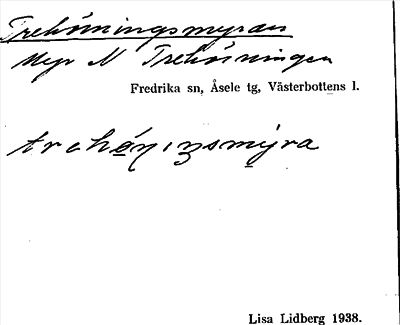 Trehörningsmyran
Myr N Trehörningen
Fredrika sn, Åsele tg, Västerbottens l.
Lisa Lidberg 1938.